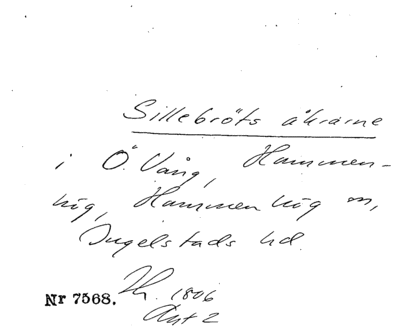 Sillebröts åkrarne
i Ö. Vång, Hammen-
hög, Hammenhög sn,
Ingelstads hd.
Nr 7568. Th. 1806
Akt 2